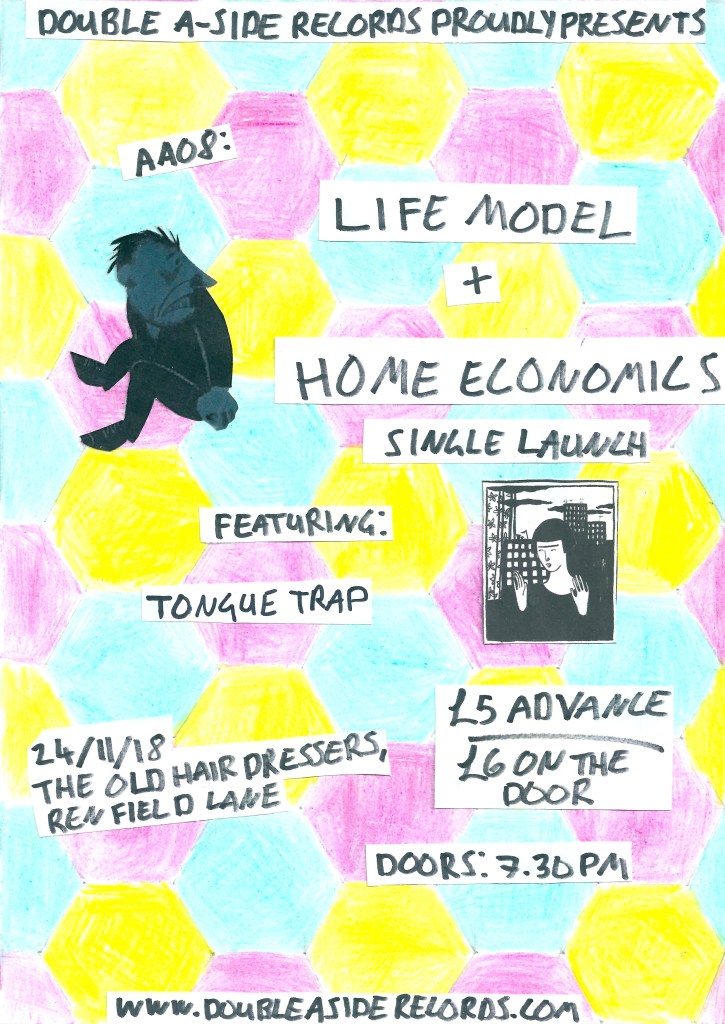 DOUBLE A-SIDE RECORDS PROUDLY PRESENTS
AA08:
LIFE MODEL
+
HOME ECONOMICS
SINGLE LAUNCH
FEATURING:
TONGUE TRAP
£5 ADVANCE
£6 ON THE
DOOR
24/11/18
THE OLD HAIR DRESSERS,
RENFIELD LANE
DOORS: 7.30PM
WWW.DOUBLEASIDERECORDS.COM